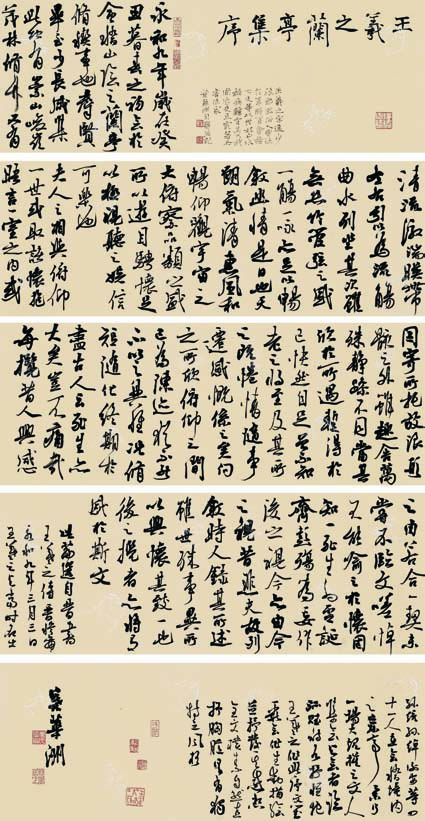 王羲之蘭亭集序
永和九年歲在癸
丑暮春之初會於
會稽山陰之蘭亭
脩禊事也群賢
畢至少長咸集
此地有崇山峻嶺
茂林脩竹又有
清流激湍映帶
左右引以為流觴
曲水列坐其次雖
無絲竹管弦之盛
一觴一詠亦足以暢
敘幽情是日也天
朗氣清惠風和
暢仰觀宇宙之
大俯察品類之盛
所以遊目騁懷足
以極視聽之娛信
可樂也
夫人之相與俯仰
一世或取諸懷抱
晤言一室之內或
因寄所託放浪形
骸之外雖趣舍萬
殊靜躁不同當其
欣於所遇暫得於
己怏然自足曾不知
老之將至及其所
之既倦情隨事
遷感慨係之矣向
之所欣俯仰之間
已為陳跡猶不能
不以之興懷況脩
短隨化終期於
盡古人云死生亦
大矣豈不痛哉
每攬昔人興感
之由若合一契未
嘗不臨文嗟悼
不能喻之於懷固
知一死生為虛誕
齊彭殤為妄作
後之視今亦由今
之視昔悲夫故列
敘時人錄其所述
雖世殊事異所
以興懷其致一也
後之攬者亦將有
感於斯文
此篇選自晉書
王羲之傳晉穆帝
永和九年三月三日
王羲之與當時名士
孫統孫綽謝安等四
吳華洲